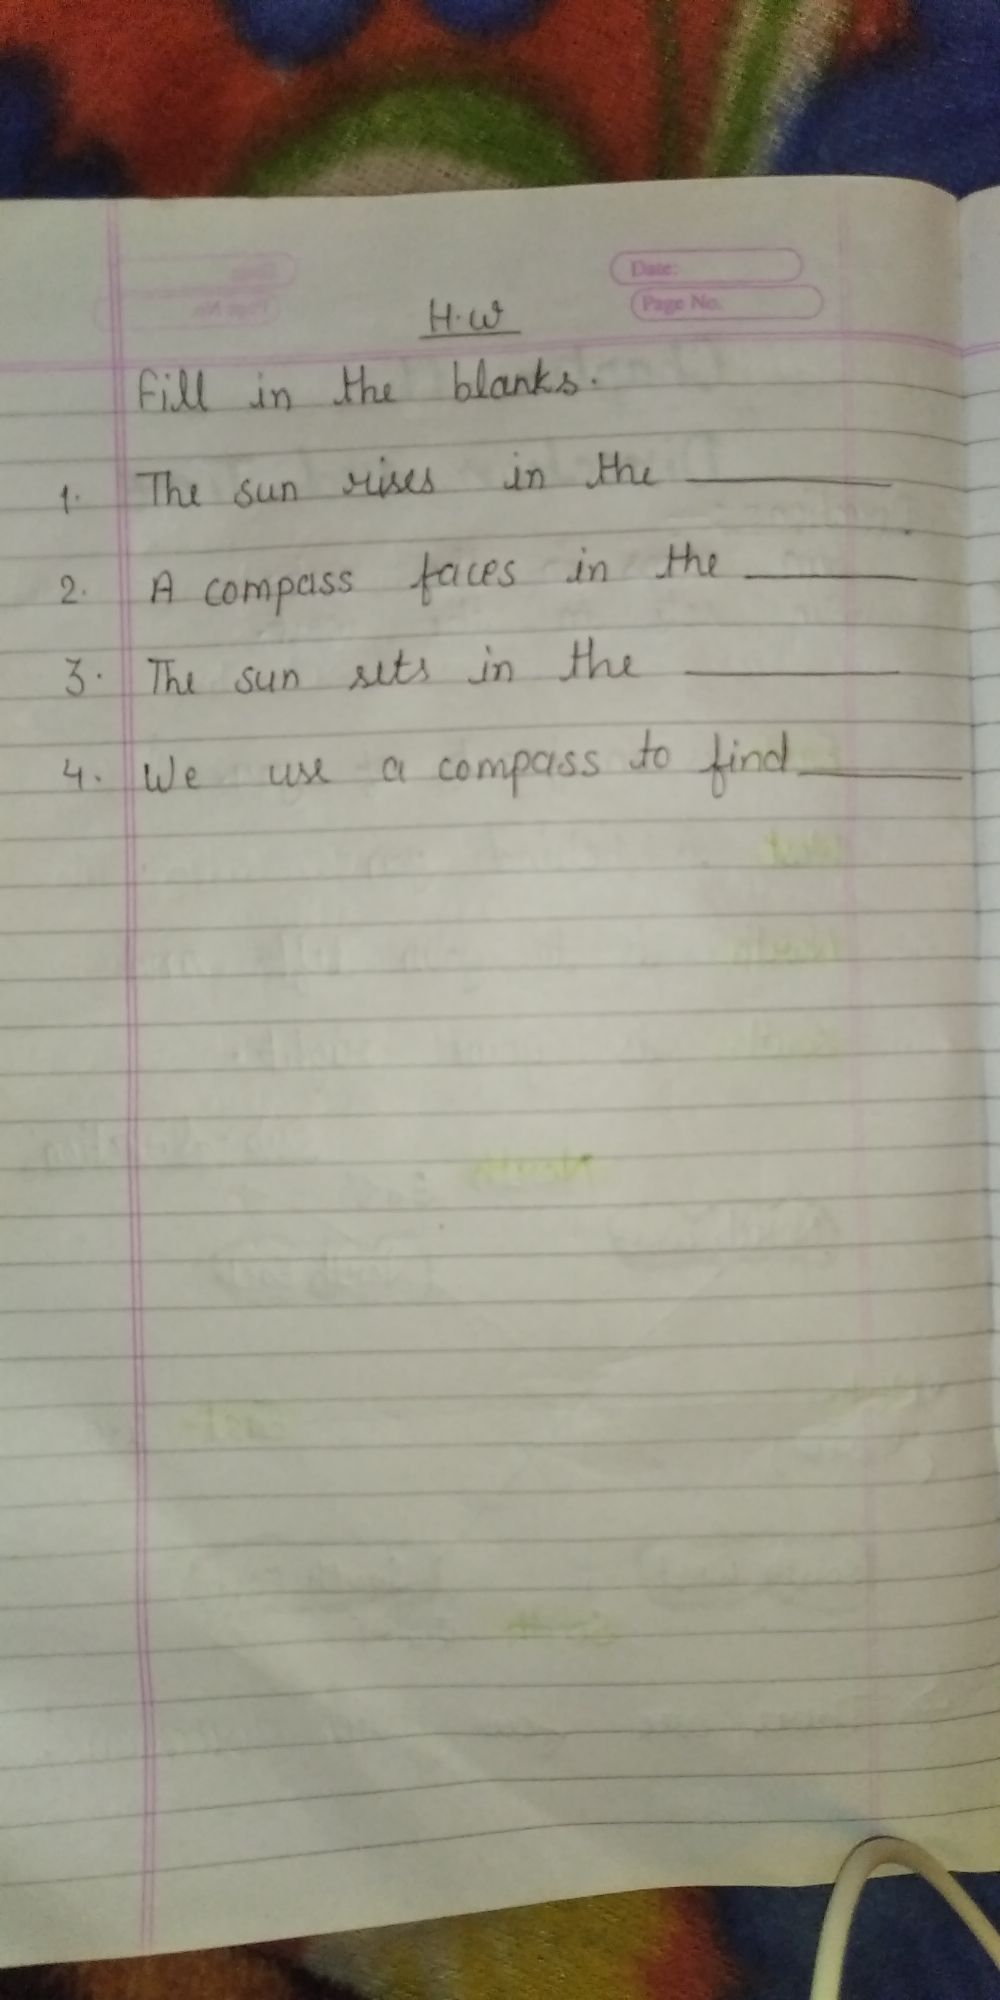 Date:
Page No.
H.W
Fill in the blanks.
1. The sun rises in the ________
2. A compass faces in the ________
3. The sun sets in the ________
4. We use a compass to find ________